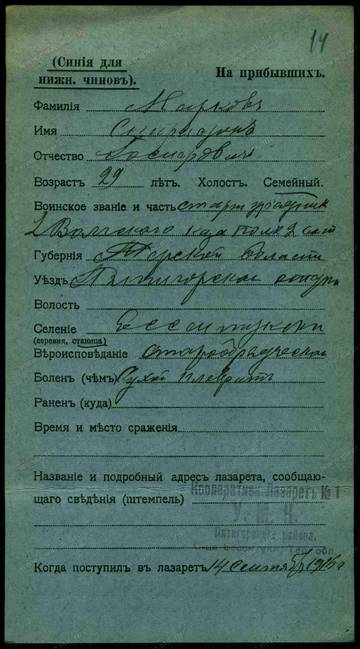 14
(Синія для
нижн. чиновъ).
На прибывшихъ.
Фамилія Марковъ
Имя Спиридонъ
Отчество
Возрастъ 29 лѣтъ. Холост. Семейный.
Воинское званіе и часть старш урядник
2 Волгскаго каз полк 2 сот
Губернія Терской области
Уѣздъ Пятигорскаго отдѣл
Волость
Селеніе Ессентуки
(деревня, станица)
Вѣроисповѣданіе старообрядческое
Боленъ (чѣмъ) Сухой плевритъ
Раненъ (куда)
Время и мѣсто сраженія
Названіе и подробный адресъ лазарета, сообщаю-
щаго свѣдѣнія (штемпель)
Кооператив. Лазаретъ № 1
Пятигорскаго района,
обл.
Когда поступилъ въ лазаретъ 14 сентября